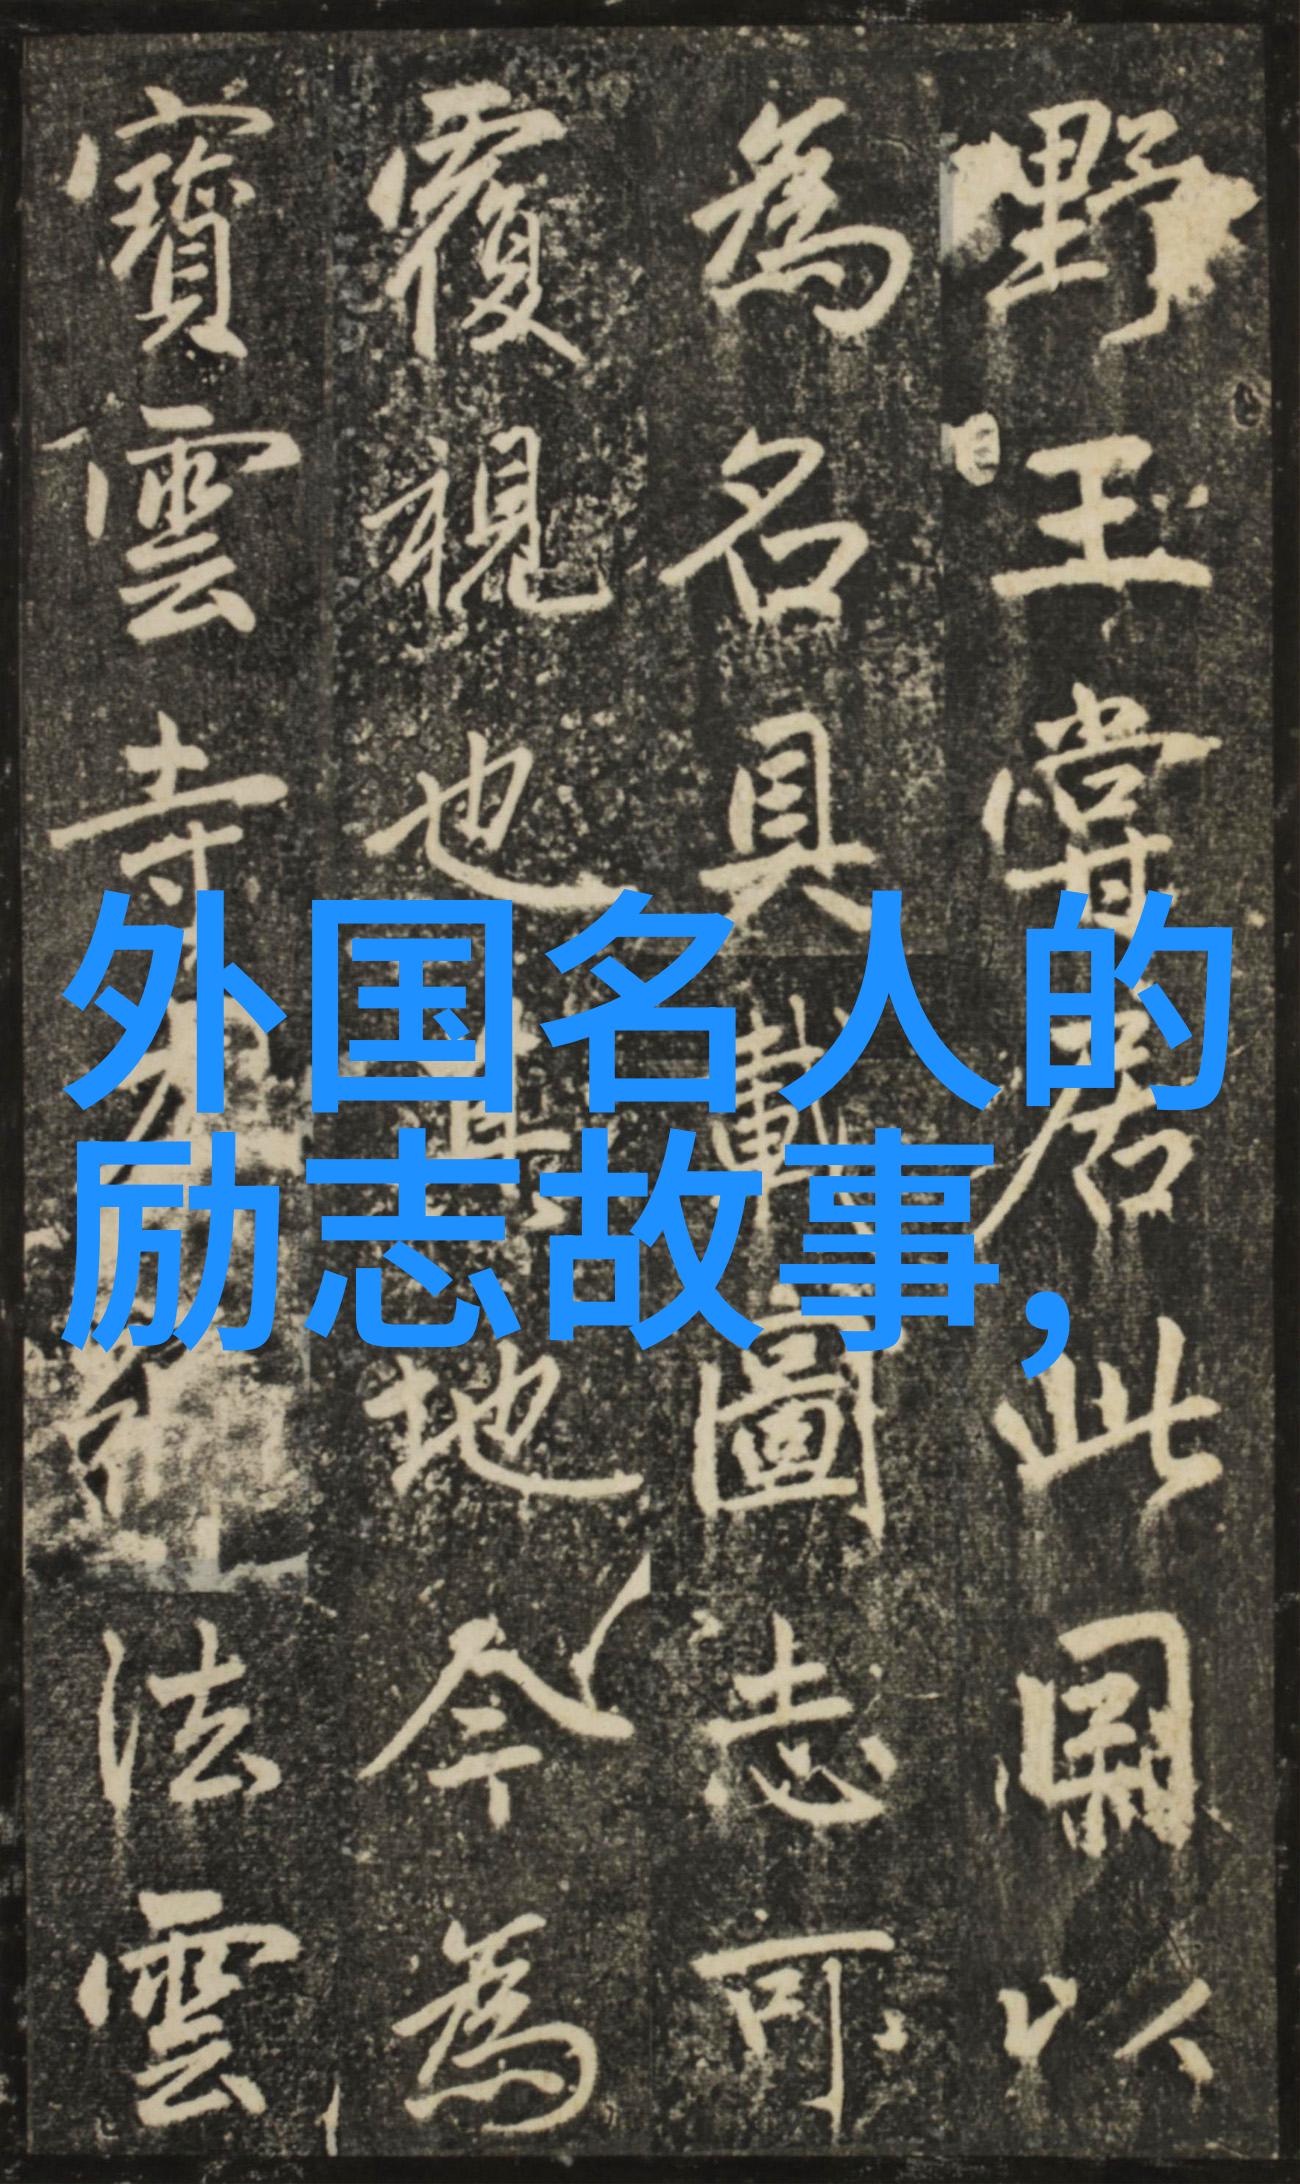 外国名人的
励志故事,
野王嘗居此以
為名具載圖志可
覆視也其地今為
寶雲寺法雲